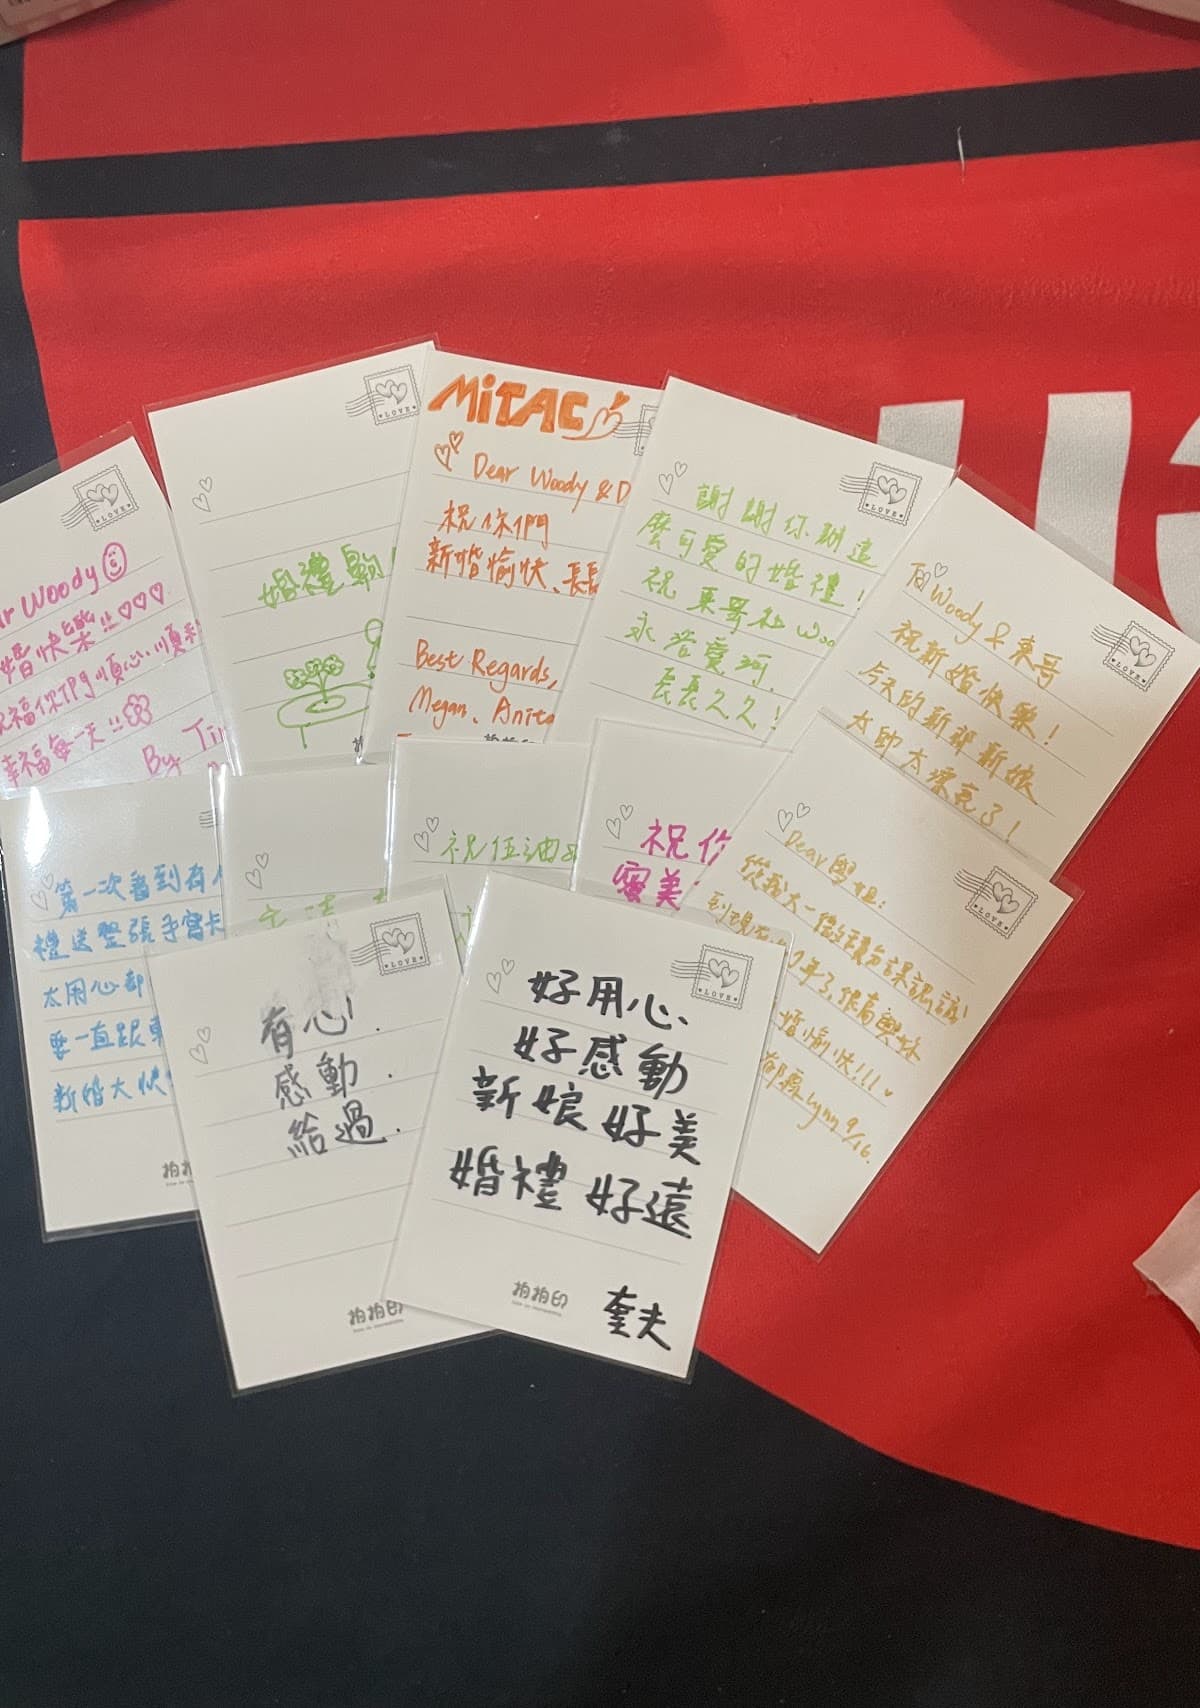 Woody
婚快樂!!♡♡♡
祝福你們順心順利
幸福每一天!!
By Tin
LOVE
婚禮
LOVE
MiTAC
Dear Woody & D
祝你們
新婚愉快、長長
Best Regards,
Megan、Anita
謝謝你辦這
麼可愛的婚禮!
祝東哥和Woo
永浴愛河.
長長久久!
LOVE
To Woody & 東哥
祝新婚快樂!
今天的新郎新娘
太漂亮了!
LOVE
第一次看到有人
禮送整張手寫卡
太用心
要一直跟東
新婚大快
拍
祝伍迪
祝你
蜜美
Dear 學姐:
從我大一微積分課認識
到現在 年了,很高興妳
婚愉快!!!
Lynn 9/16.
LOVE
有心!
感動.
給過.
LOVE
拍拍印
好用心、
好感動
新娘好美
婚禮好遠
奎夫
LOVE
拍拍印